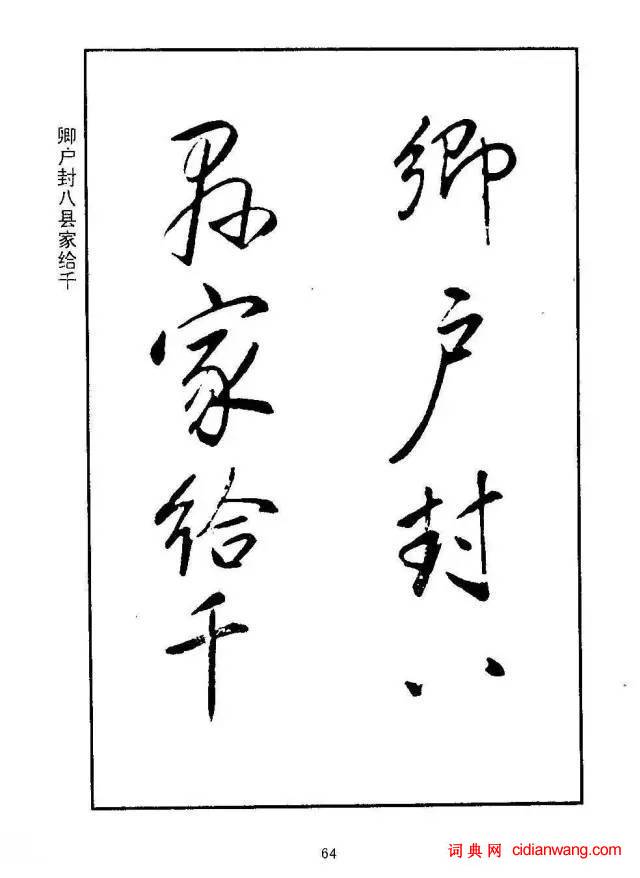 卿户封八
县家给千
卿户封八县家给千
64
词典网 cidianwang.com